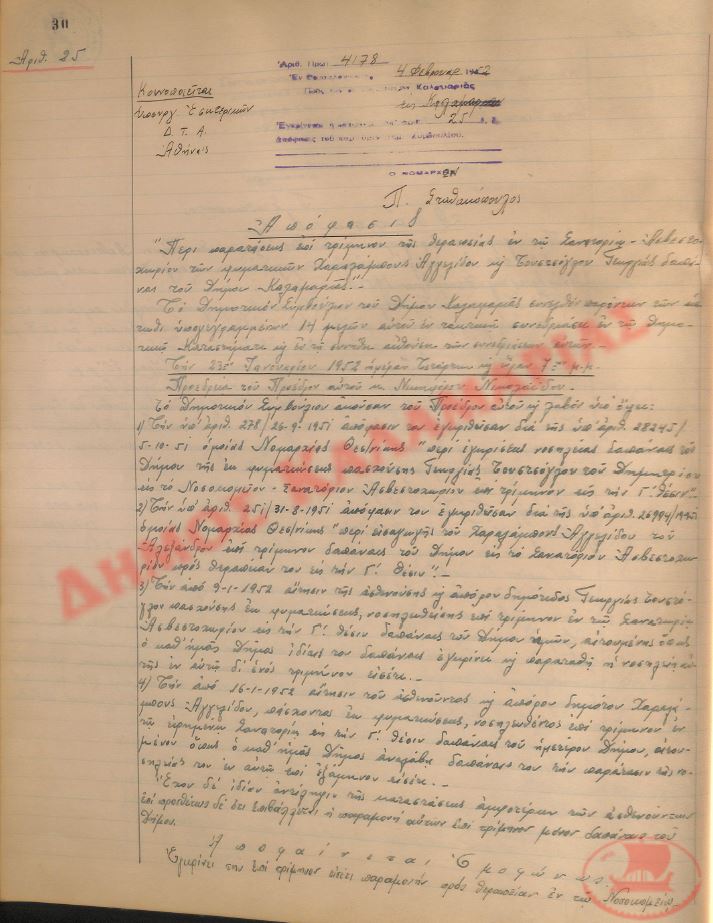 30
Αριθ. 25
Αριθ. Πρωτ. 4178
Εν Θεσσαλονίκη 4 Φεβρουαρ. 1952
Κοινοποιείται
Υπουργ. Εσωτερικών
Δ. Τ. Α.
Αθήνας
Καλαμαριάς
25
Ο ΝΟΜΑΡΧΗΣ
Π. Σταθακόπουλος
Απόφασις
"Περί παρατάσεως επί τρίμηνον της θεραπείας εν τω Σανατορίω Ασβεστο-
χωρίου των φυματικών Χαραλάμπους Αγγελίδου κ Τουτσόγλου Γεωργίας δαπά-
ναις του Δήμου Καλαμαριάς."
Το Δημοτικόν Συμβούλιον του Δήμου Καλαμαριάς συνελθόν παρόντων των κά-
τωθι υπογεγραμμένων 14 μελών αυτού εν τακτική συνεδριάσει εν τω Δημο-
τικώ Καταστήματι κ εν τη συνήθει αιθούση των συνεδριάσεων αυτού.
Την 23ην Ιανουαρίου 1952 ημέραν Τετάρτην κ ώραν 7ην μ.μ.
Προεδρία του Προέδρου αυτού κ. Νικολαΐδου.
Το Δημοτικόν Συμβούλιον ακούσαν του Προέδρου αυτού κ λαβόν υπ' όψει:
1) Την υπ' αριθ. 278/26-9-1951 απόφασίν του εγκριθείσαν διά της υπ' αριθ. 28245/
5-10-51 ομοίας Νομαρχίας Θεσ/νίκης "περί εγκρίσεως νοσηλείας δαπάναις του
Δήμου της εκ φυματιώσεως πασχούσης Γεωργίας Τουτσόγλου του
εις το Νοσοκομείον - Σανατόριον Ασβεστοχωρίου επί τρίμηνον εις την Γ' θέσιν".
2) Την υπ' αριθ. 251/31-8-1951 απόφασίν του εγκριθείσαν διά της υπ' αριθ. 26994/1951
ομοίας Νομαρχίας Θεσ/νίκης "περί εισαγωγής του Χαραλάμπους Αγγελίδου του
Αλεξάνδρου επί τρίμηνον δαπάναις του Δήμου εις το Σανατόριον Ασβεστοχω-
ρίου προς θεραπείαν του εις την Γ' θέσιν".-
3) Την από 9-1-1952 αίτησιν της ασθενούσης κ απόρου δημότιδος Γεωργίας Τουτσό-
γλου πασχούσης εκ φυματιώσεως, νοσηλευθείσης επί τρίμηνον εν τω Σανατορίω
Ασβεστοχωρίου εις την Γ' θέσιν δαπάναις του Δήμου ημών, αιτουμένης όπως
ο καθ' ημάς Δήμος ιδίαις του δαπάναις εγκρίνει κ παραταθή η νοσηλεία αυ-
της εν αυτώ δι' ενός τριμήνου εισέτι.-
4) Την από 16-1-1952 αίτησιν του ασθενούντος κ απόρου δημότου Χαραλά-
μπους Αγγελίδου, πάσχοντος εκ φυματιώσεως, νοσηλευθέντος επί τρίμηνον εν
τω ειρημένω Σανατορίω εις την Γ' θέσιν δαπάναις του ημετέρου Δήμου, αιτου-
μένου όπως ο καθ' ημάς Δήμος αναλάβη δαπάναις του την παράτασιν της νο-
σηλείας του εν αυτώ επί εξάμηνον εισέτι.-
Έχον δε ιδίαν αντίληψιν της καταστάσεως αμφοτέρων των ασθενούντων
επί προσθέτως δε ότι επιβάλλεται η παραμονή αυτών επί τρίμηνον μόνον δαπάναις του
Δήμου.
Αποφαίνεται Ομοφώνως
Εγκρίνει την επί τρίμηνον εισέτι παραμονήν προς θεραπείαν εν τω Νοσοκομείω